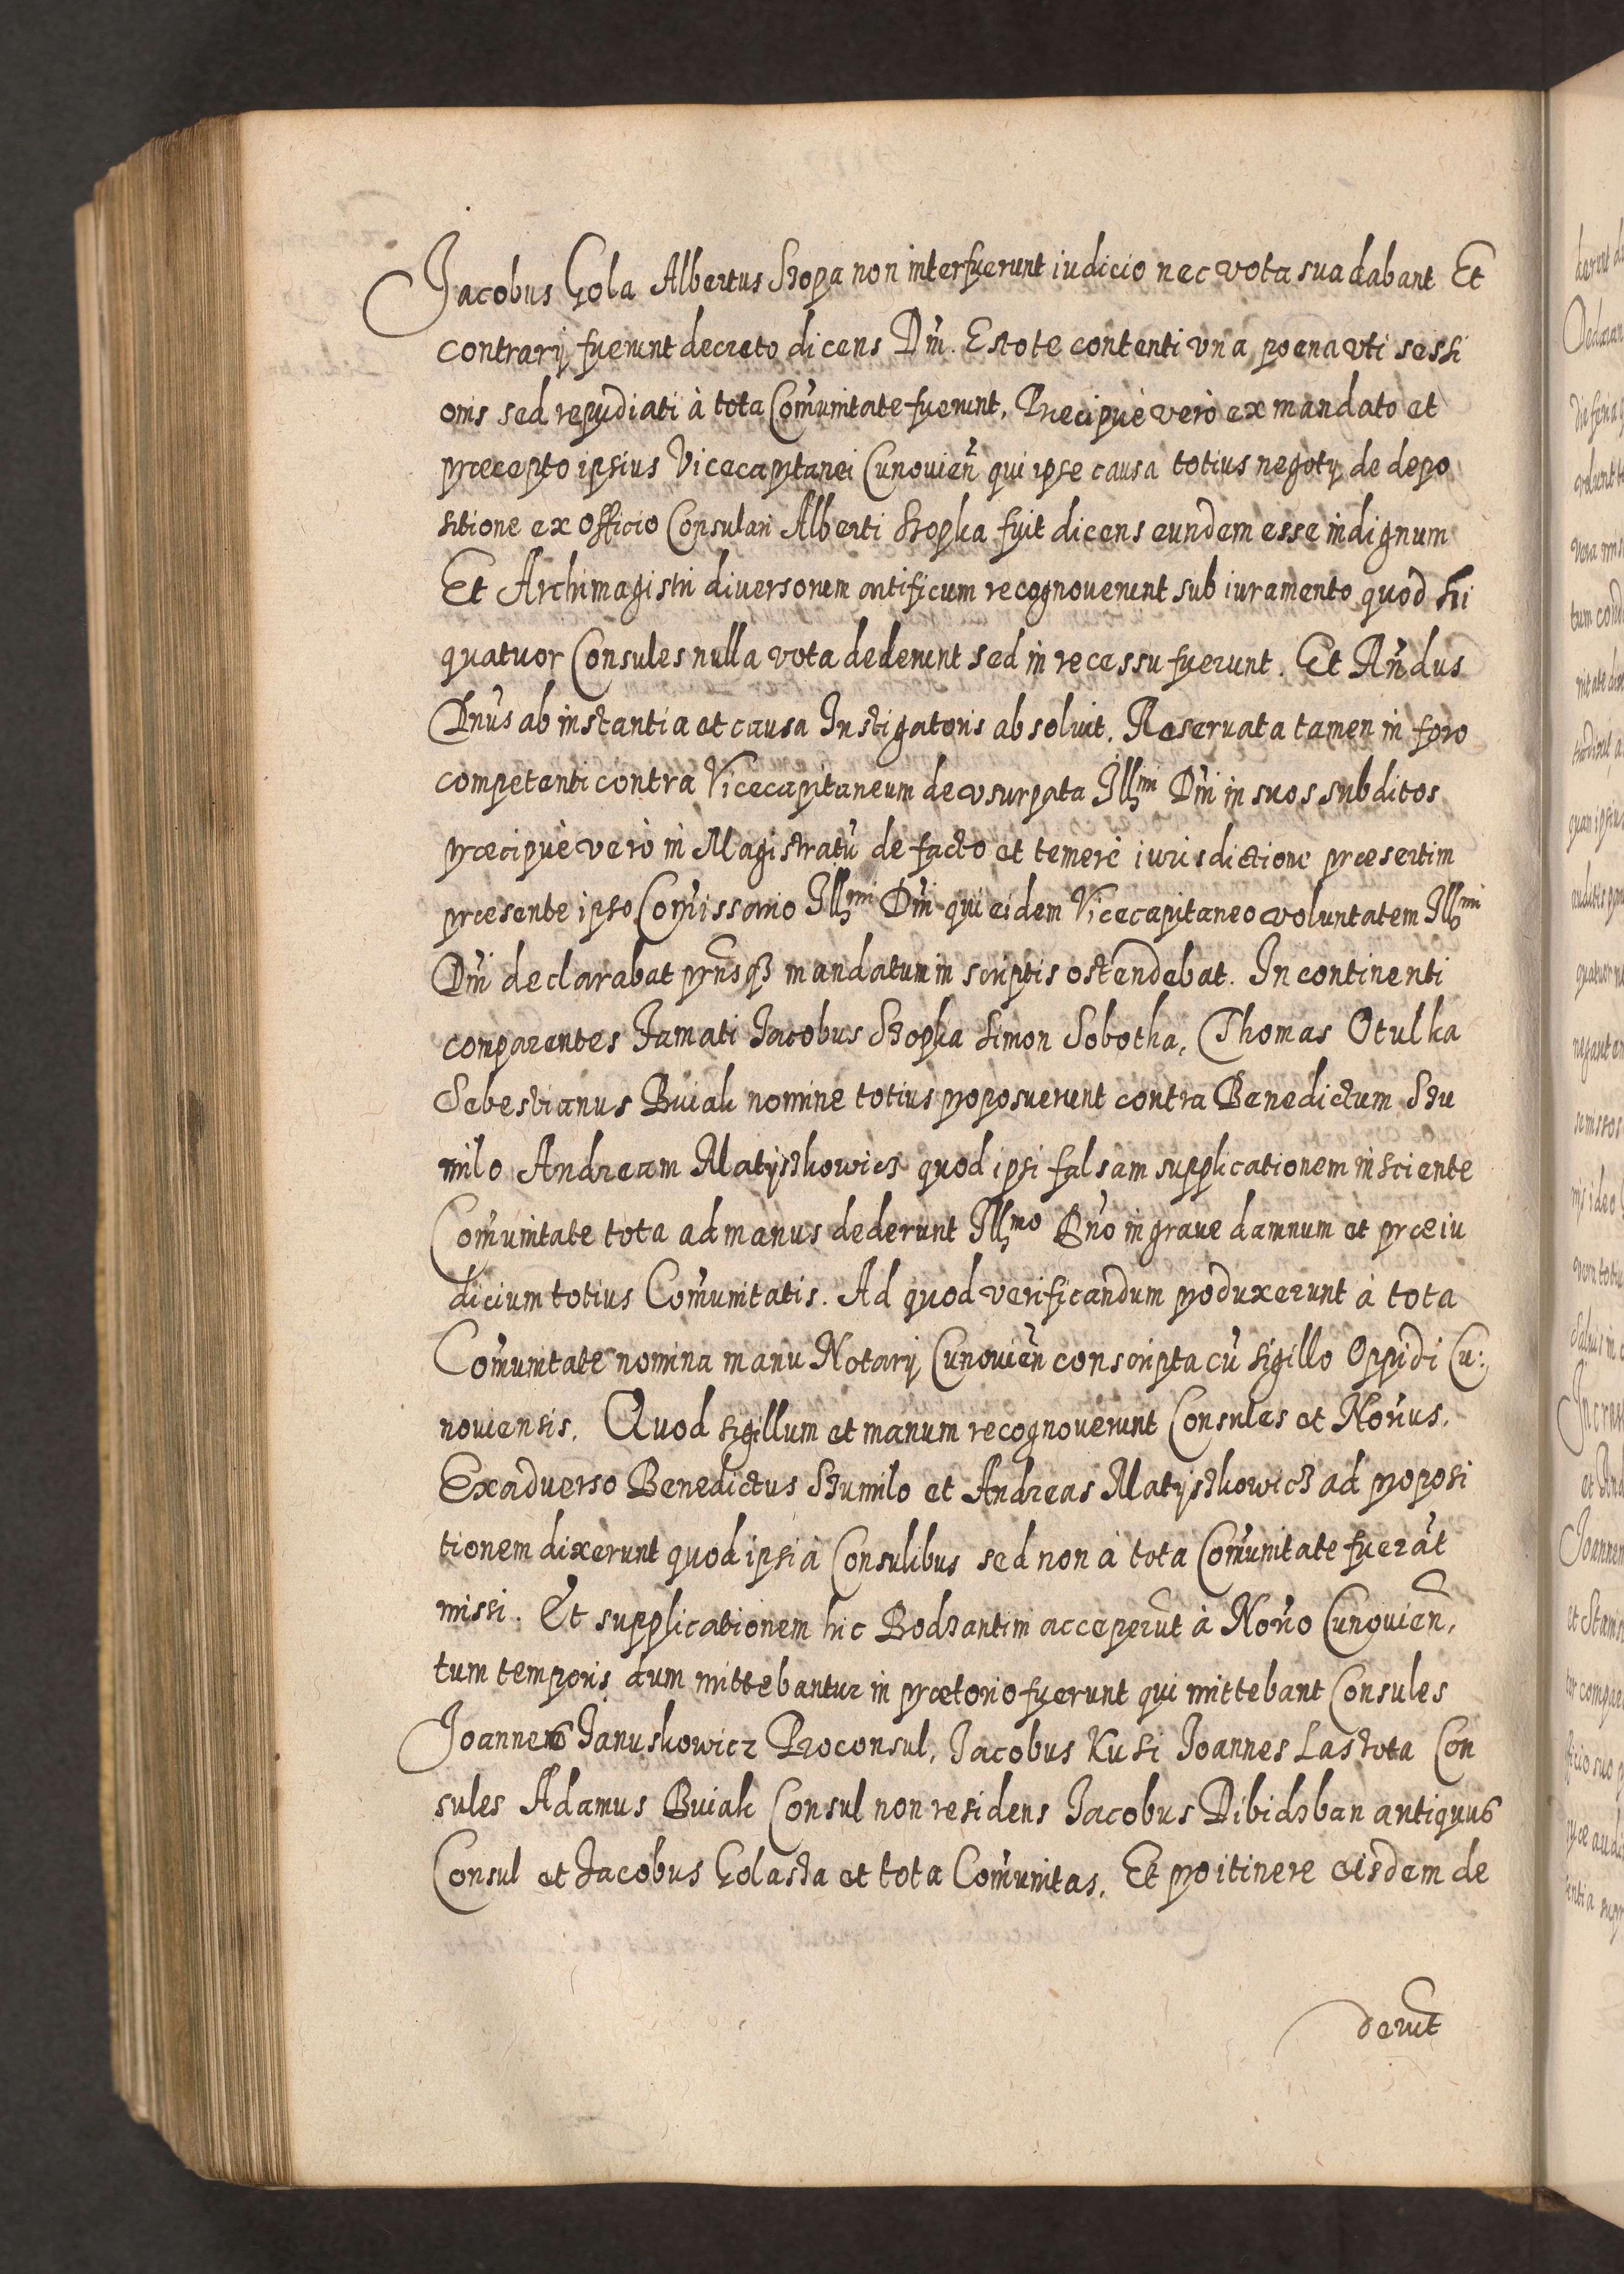 Jacobus Gola Albertus Szopa non interfuerunt iudicio nec vota sua dabant Et
contrarij fuerunt decreto dicens Dni. Estote contenti vna poena vti sessi
onis sed repudiati à tota Com̃unitate fuerunt, Præcipuè verò ex mandato et
præcepto ipsius Vicecapitanei Cunovien̄ qui ipse causa totius negotij de depo
sitione ex Officio Consulari Alberti Szopka fuit dicens eundem esse indignum
Et Archimagistri diversorum artificum recognouerunt sub iuramento quod hi
quatuor Consules nulla vota dederunt sed in recessu fuerunt. Et An̄dus
Dnus ab instantia et causa Instigatoris absoluit. Reseruata tamen in foro
competenti contra Vicecapitaneum de vsurpata Illmi Dni in suos subditos
præcipuè verò in Magistratū de facto et temerè iurisdictione præsertim
præsente ipso Com̃issario Illmi Dni qui eidem Vicecapitaneo voluntatem Illmi
Dni declarabat prn̄sqʒ mandatum in scriptis ostendebat. In continenti
comparentes Famati Jacobus Szopka Simon Sobotka, Thomas Otulka
Sebestianus Buiak nomine totius proposuerunt contra Benedictum Szu
milo Andream Matyszkowicz quod ipsi falsam supplicationem insciente
Com̃unitate tota ad manus dederunt Illmo Dno in graue damnum et præiu
dicium totius Com̃unitatis. Ad quod verificandum produxerunt à tota
Com̃unitate nomina manu Notarij Cunovien̄ conscripta cū sigillo Oppidi Cu:
noviensis. Quod sigillum et manum recognoverunt Consules et Norīus.
Exadverso Benedictus Szumilo et Andreas Matyszkowicz ad proposi
tionem dixerunt quod ipsi à Consulibus sed non à tota Com̃unitate fuerāt
missi. Et supplicationem hic Bodzantini acceperūt à Norīo Cunovien̄,
tum temporis dum mittebantur in prætorio fuerunt qui mittebant Consules
Joannes Januskowicz Proconsul, Jacobus Kusi Joannes Lastota Con
sules Adamus Buiak Consul non residens Jacobus Dibidzban antiquus
Consul et Jacobus Golasza et tota Com̃unitas. Et pro itinere eisdem de
derūt